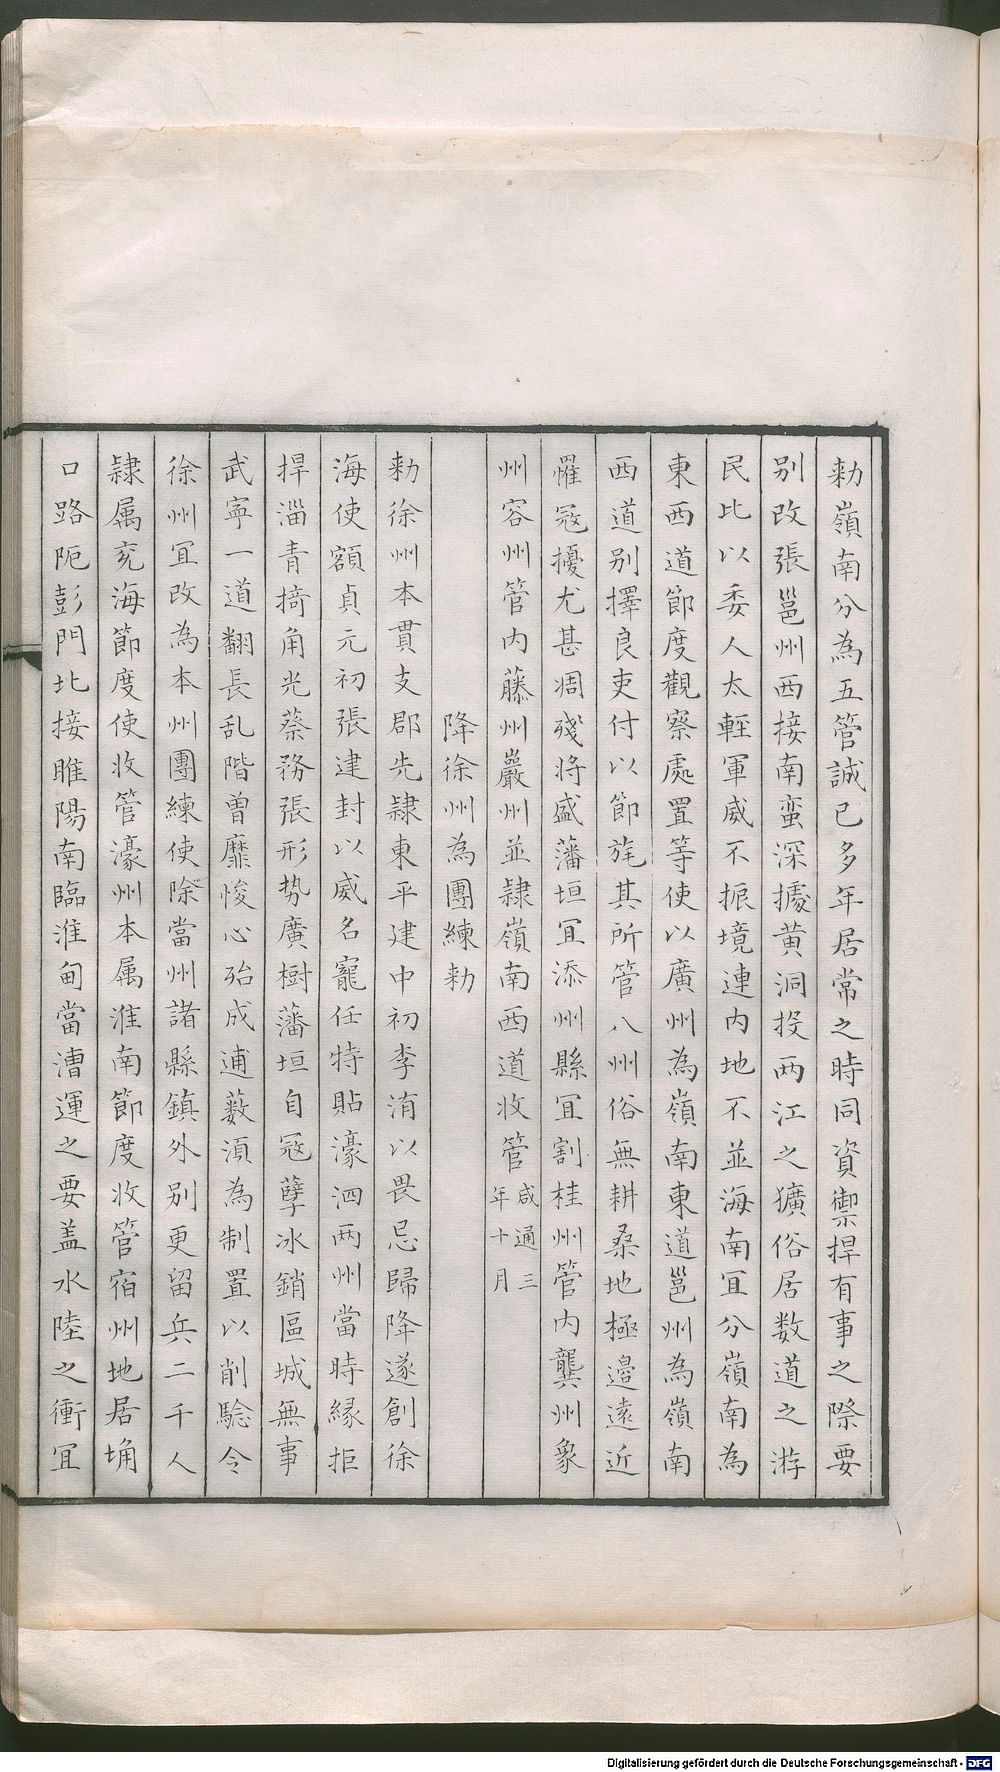 勑嶺南分為五管誠已多年居常之時同資禦捍有事之際要
別改張邕州西接南蛮深據黄洞控两江之獷俗居数道之游
民比以委人太輕軍威不振境連内地不並海南宜分嶺南為
東西道節度觀察處置等使以廣州為嶺南東道邕州為嶺南
西道别擇良吏付以節旄其所管八州俗無耕桑地極邉逺近
罹冦擾尤甚凋殘将盛藩垣宜添州縣宜割桂州管内龔州象
州容州管内藤州巖州並隷嶺南西道收管咸通三年十月
降徐州為團練勑
勑徐州本貫支郡先隷東平建中初李洧以畏忌歸降遂創徐
海使額貞元初張建封以威名寵任特貼濠泗两州當時縁拒
捍淄青掎角光蔡務張形势廣樹藩垣自冦孽冰銷區城無事
武寜一道翻長乱階曽靡悛心殆成逋薮湏為制置以削騐令
徐州宜改為本州團練使除當州諸縣鎮外别更留兵二千人
隷属兖海節度使收管濠州本属淮南節度收管宿州地居埇
口路阨彭門北接睢陽南臨淮甸當漕運之要盖水陸之衝宜
Digitalisierung gefördert durch die Deutsche Forschungsgemeinschaft - DFG